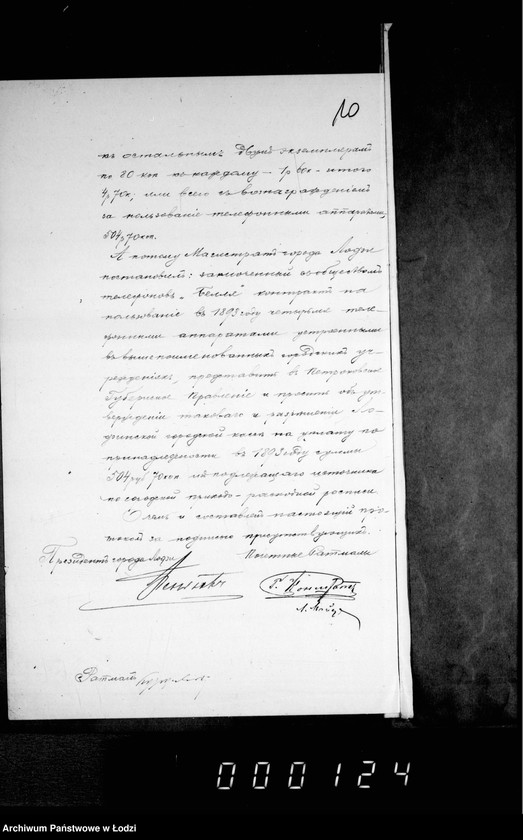 10
къ остальнымъ двумъ экземплярамъ
по 80 коп къ каждому – 1 р 60 к – итого
4 р 70 к; или всего съ вознагражденіемъ
за пользованіе телефонными аппаратами,
504 р 70 коп.
А потому Магистратъ города Лодзи
постановилъ: заключенный съ обществомъ
телефоновъ „Белля" контрактъ на
пользованіе въ 1893 году четырьмя теле-
фонными аппаратами устроенными
въ вышепоименованныхъ городскихъ уч-
режденіяхъ, представить въ Петроковское
Губернское Правленіе и просить объ ут-
вержденіи таковаго и разрѣшеніи Ло-
дзинской городской кассѣ на уплату по
принадлежности въ 1893 году суммы
504 руб 70 коп изъ подлежащаго источника
по городской приходо-расходной росписи
О чемъ и составленъ настоящій про-
токолъ за подписью присутствующихъ.
Президентъ города Лодзи
Почетные Ратманы
Пеньковскій
Ратманъ
000124
Archiwum Państwowe w Łodzi